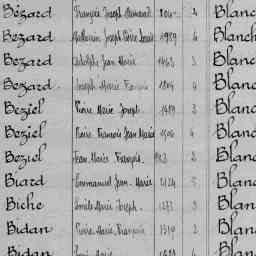 Bézard François Joseph 804 2 Blanc
Bezard Joseph Pierre Louis 1989 4 Blanch
Bezard Adolphe Jean Marie 1463 3 Blanc
Bezard Joseph Marie 1864 4 Blanc
Beziel Pierre Marie Joseph 1489 3 Blanc
Beziel Pierre François Jean Marie 1506 4 Blanc
Beziel Jean Marie François 2 Blan
Biard Emmanuel Jean Marie 2124 5 Blanc
Biche Emile Marie Joseph 1273 3 Blan
Bidan Pierre Marie François 1310 2 Blan
Bidan Blan